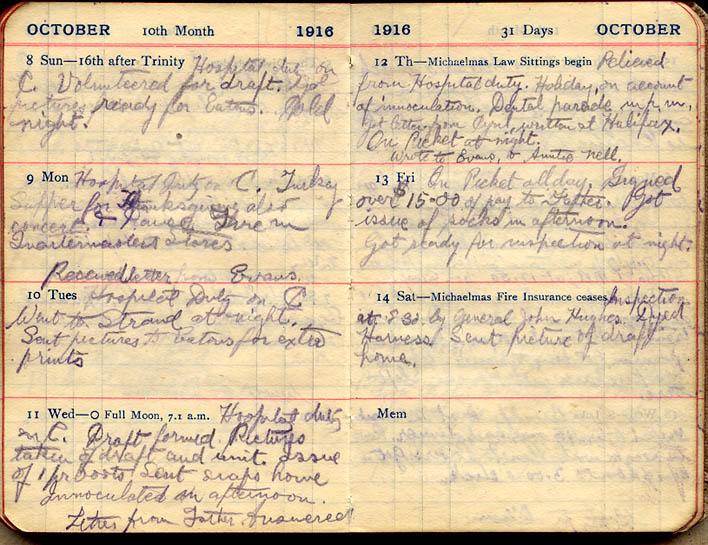 OCTOBER 10th Month 1916
8 Sun—16th after Trinity Hospital duty on
C. Volunteered for draft. Got
pictures ready for Eatons. Cold
night.
9 Mon Hospital Duty on C. Turkey
Supper for Thanksgiving also
concert. & Fire in
Quartermasters stores
Received letter from Evans.
10 Tues Hospital Duty on C
Went to Strand at night.
Sent pictures to Eatons for extra
prints
11 Wed—O Full Moon, 7.1 a.m. Hospital duty
on C. Draft formed Pictures
taken of draft and unit. issue
of 1 pr boots Sent snaps home
Innoculated in afternoon.
Letter from Father. Answered
1916 31 Days OCTOBER
12 Th—Michaelmas Law Sittings begin Relieved
from Hospital duty. Holiday, on account
of innoculation. Dental parade in p.m.
got letter from Cyril, written at Halifax.
On Picket at night.
Wrote to Evans, & Auntie Nell.
13 Fri On Picket all day, Signed
over $15-00 of pay to Father. Got
issue of socks in afternoon.
Got ready for inspection at night.
14 Sat—Michaelmas Fire Insurance ceases Inspection
at 8 30 by General John Hughes.
Harness Sent picture of draft
home.
Mem